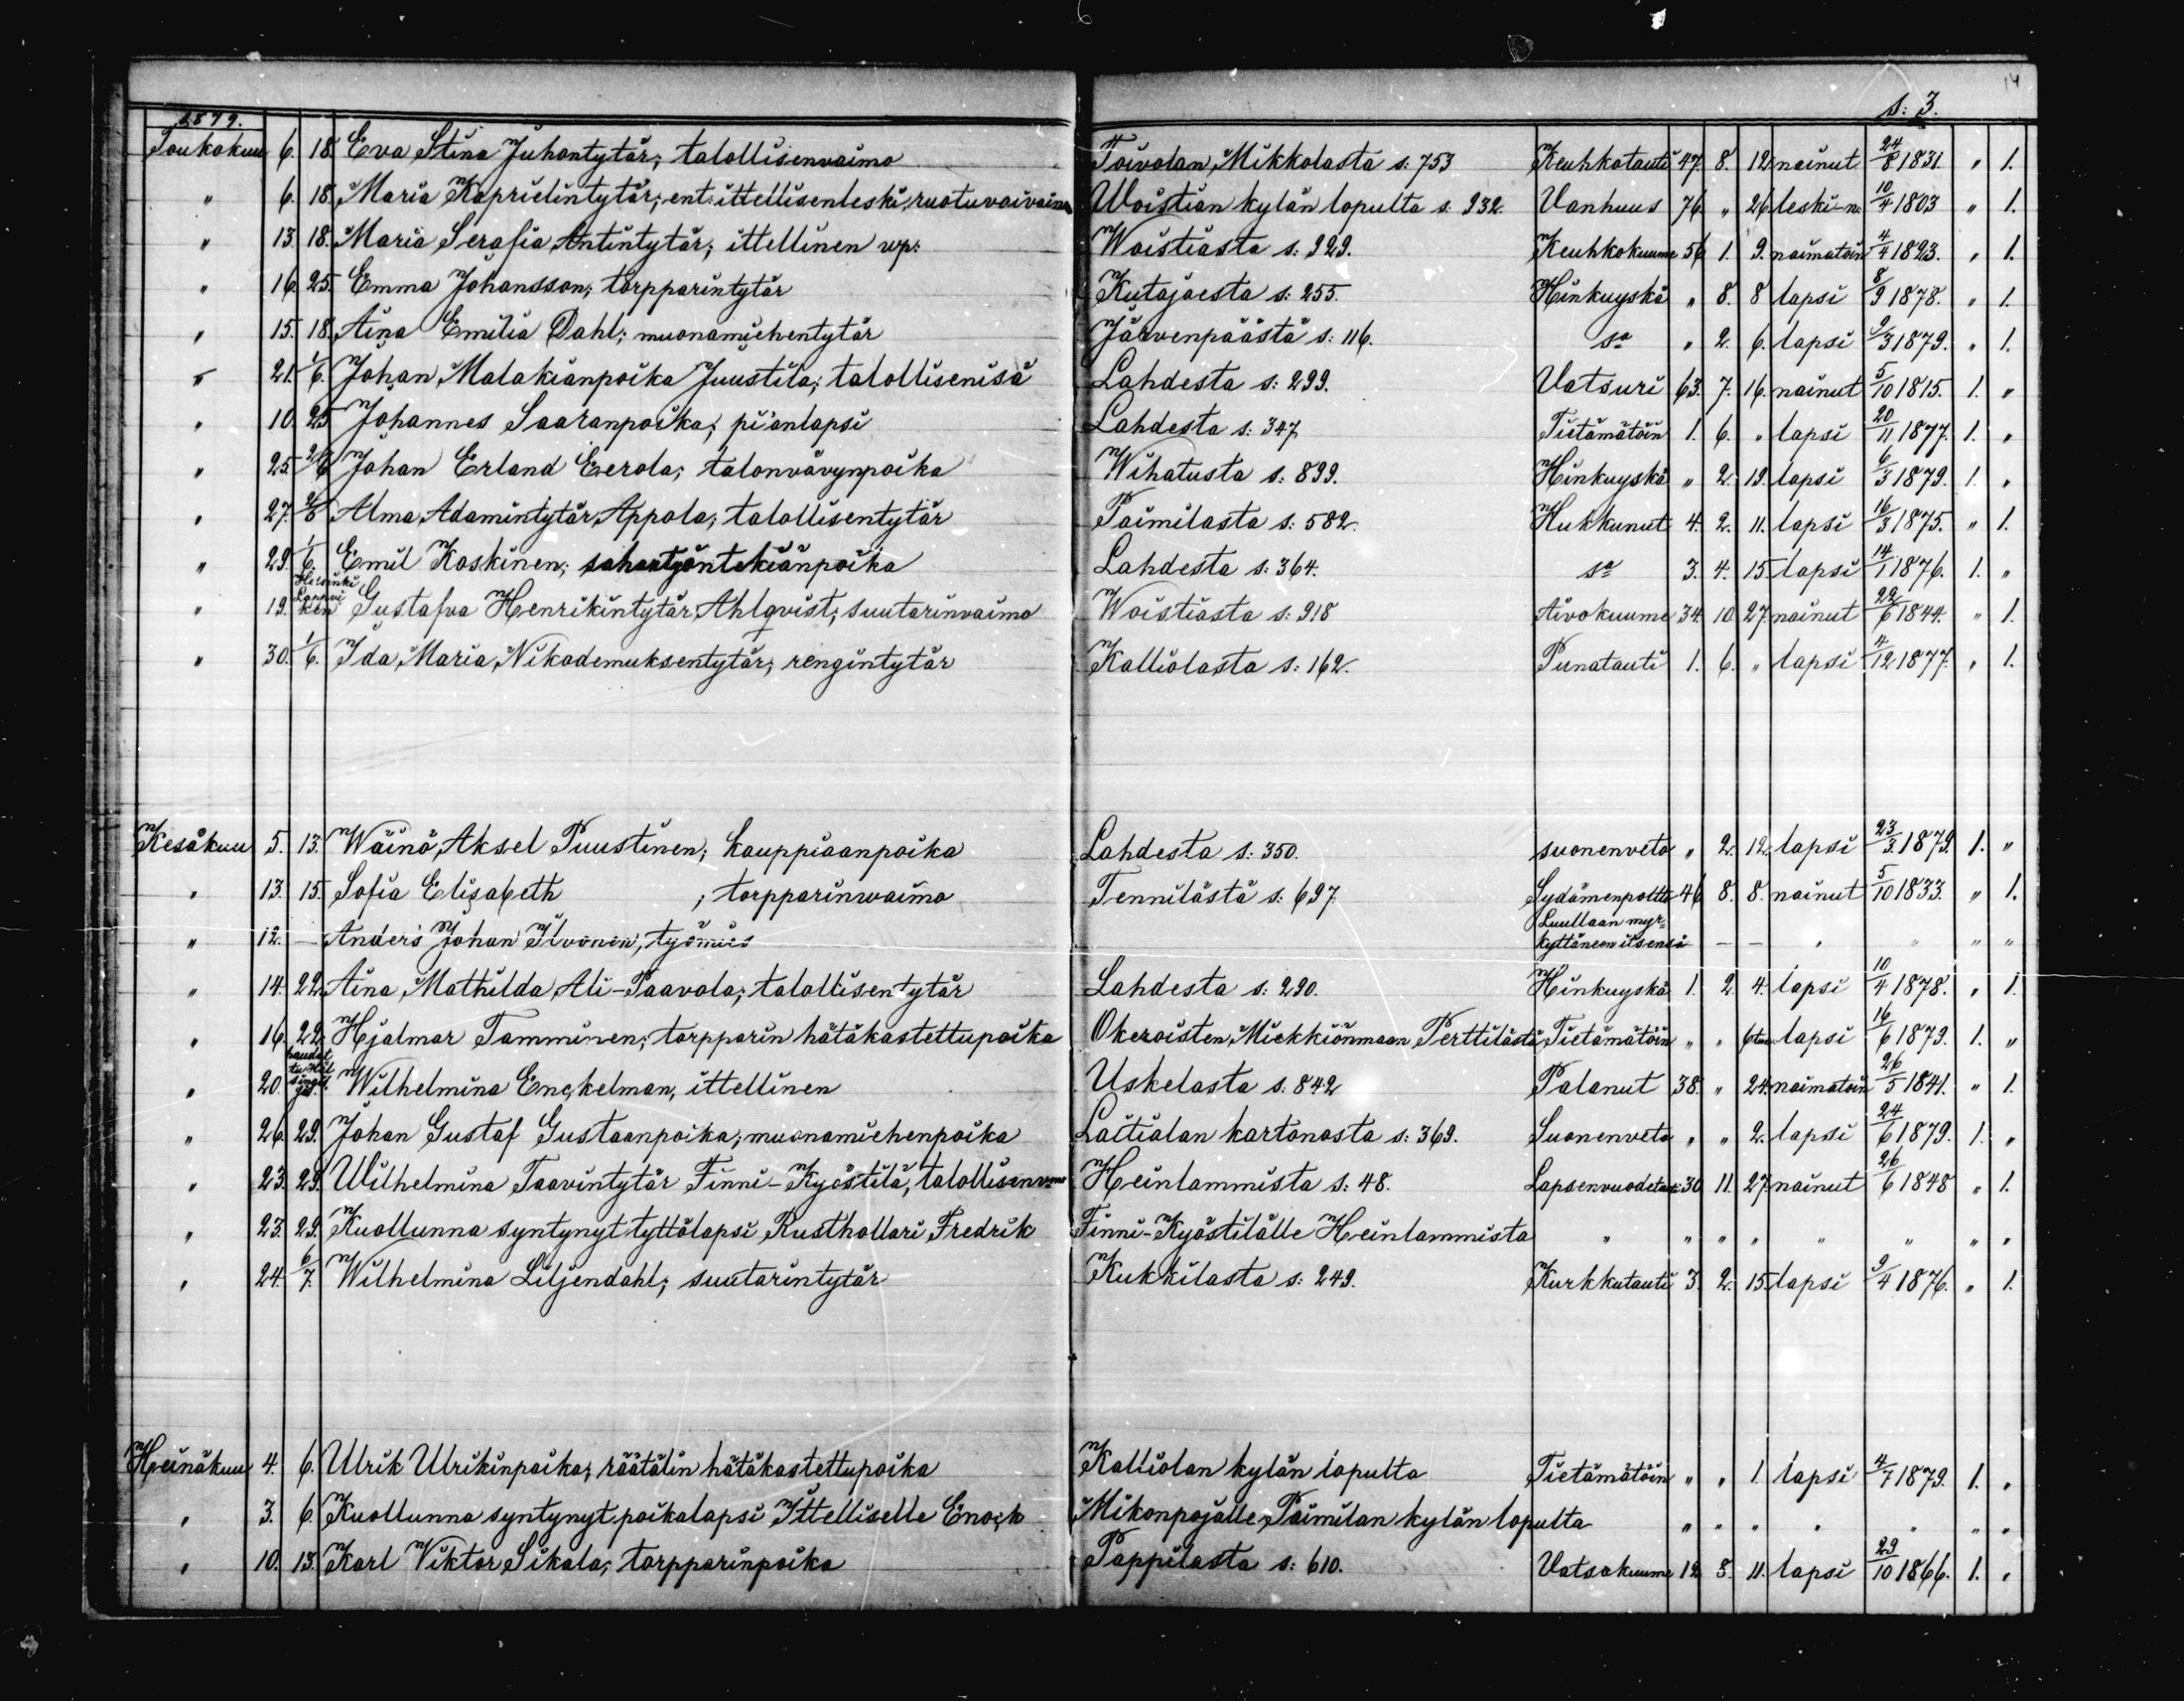 14
s: 3.
1879.
Toukokuu 6. 18. Eva Stina Juhontytär; talollisenvaimo Toivolan, Mikkolasta s: 753 Keuhkotauti 47. 8. 12 nainut 24/8 1831. " 1.
" 6. 18. Maria Kaprielintytär; ent. ittellisenleski, ruotuvaivainen Woistian kylän lopulta s. 932. Vanhuus 76. " 26. leski-n. 10/4 1803 " 1.
" 13. 18. Maria Serafia Antintytär; ittellinen wp: Woistiasta s: 929. Keuhkokuume 56 1. 9. naimatoin 4/4 1823. " 1.
" 16. 25. Emma Johansson; torpparintytär Kutajaesta s: 255. Hinkuyskä " 8. 8 lapsi 8/9 1878. " 1.
" 15. 18. Aina Emilia Dahl; muonamiehentytär Järvenpäästä s: 116. sa " 2. 6. lapsi 9/3 1879. " 1.
" 21. 1/6. Johan Malakianpoika Juustila; talollisenisä Lahdesta s: 299. Vatsuri 63. 7. 16. nainut 5/10 1815. 1. "
" 10. 25 Johannes Saaranpoika; pi'anlapsi Lahdesta s: 347 Tietämätöin 1. 6. " lapsi 20/11 1877. 1. "
" 25. 2/6 Johan Erland Eerola; talonvävynpoika Wihatusta s: 899. Hinkuyskä " 2. 19. lapsi 6/3 1879. 1. "
" 27. 2/6 Alma Adamintytär Appola; talollisentytär Paimilasta s: 582. Hukkunut 4. 2. 11. lapsi 16/3 1875. " 1.
" 29. 1/6. Emil Koskinen; sahantyöntekiänpoika Lahdesta s: 364. sa 3. 4. 15. lapsi 14/1 1876. 1. "
" 19. Helsinki Gustafva Henrikintytär Ahlqvist; suutarinvaimo Woistiasta s: 918 Aivokuume 34. 10. 27. nainut 22/6 1844. " 1.
" 30. 1/6. Ida Maria Nikodemuksentytär; rengintytär Kalliolasta s: 162. Punatauti 1. 6. " lapsi 4/12 1877. " 1.
Kesäkuu 5. 13. Wäinö Aksel Puustinen; kauppiaanpoika Lahdesta s: 350. suonenveto " 2. 12. lapsi 23/3 1879. 1. "
" 13. 15. Sofia Elisabeth ; torpparinwaimo Tennilästä s: 697 Sydämenpoltto 46 8. 8. nainut 5/10 1833. " 1.
" 12. — Anders Johan Ilvonen, työmies Luullaan myr-
kyttäneen itsensä — — " " " "
" 14. 22. Aina Mathilda Ali-Paavola; talollisentytär Lahdesta s: 290. Hinkuyskä 1. 2. 4. lapsi 10/4 1878. " 1.
" 16. 22. Hjalmar Tamminen; torpparin hätäkastettupoika Okeroisten, Mickkiönmaan Perttilästä Tietämätöin " " 6 tun lapsi 16/6 1879. 1. "
" 20. haudat Wilhelmina Enckelman, ittellinen Uskelasta s: 842 Palanut 38. " 24. naimatoin 26/5 1841. " 1.
" 26. 29. Johan Gustaf Gustaanpoika; muonamiehenpoika Laitialan kartonosta s: 369. Suonenveto " " 2. lapsi 24/6 1879. 1. "
" 23. 29. Wilhelmina Taavintytär Finni-Kyöstilä, talollisenvmo Heinlammista s: 48. Lapsenvuodetau: 30 11. 27. nainut 26/6 1848 " 1.
" 23. 29. Kuollunna syntynyt tyttölapsi Rusthollari Fredrik Finni-Kyöstilälle Heinlammista " " " " " " " "
" 24. 6/7. Wilhelmina Liljendahl; suutarintytär Kukkilasta s: 249. Kurkkutauti 3. 2. 15. lapsi 9/4 1876. " 1.
Heinäkuu 4. 6. Ulrik Ulrikinpoika; räätälin hätäkastettupoika Kalliolan kylän lopulta Tietämätöin " " 1. lapsi 4/7 1879. 1. "
" 3. 6. Kuollunna syntynyt poikalapsi Ittelliselle Enock Mikonpojalle, Paimilan kylän lopulta " " " " " " "
" 10. 13. Karl Viktor Sikala; torpparinpoika Pappilasta s: 610. Vatsakuume 12 8. 11. lapsi 29/10 1866. 1. "